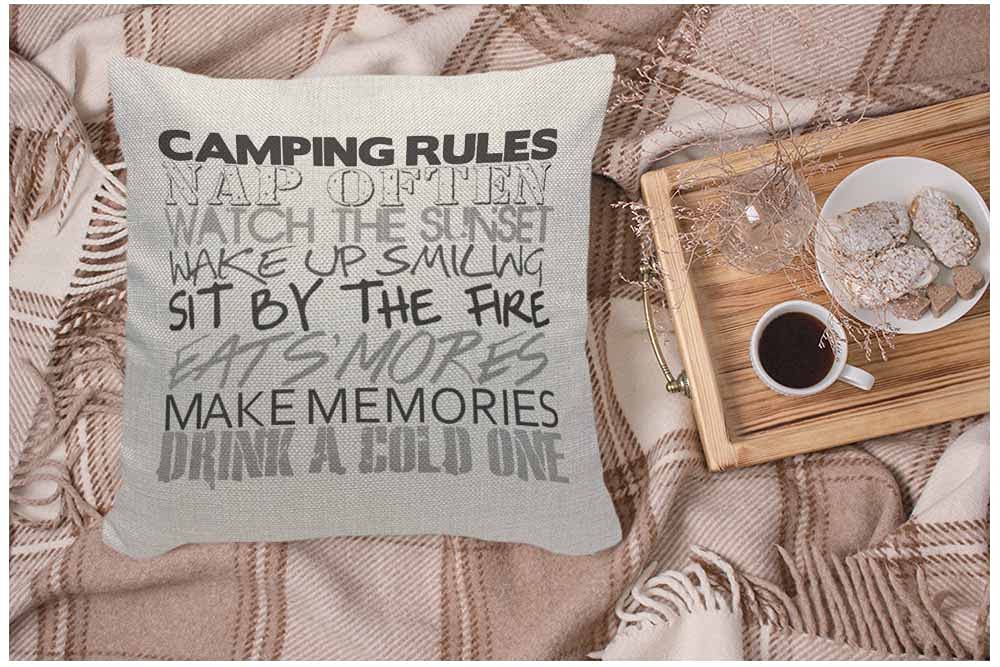 CAMPING RULES
NAP OFTEN
WATCH THE SUNSET
WAKE UP SMILING
SIT BY THE FIRE
EAT S'MORES
MAKE MEMORIES
DRINK A COLD ONE